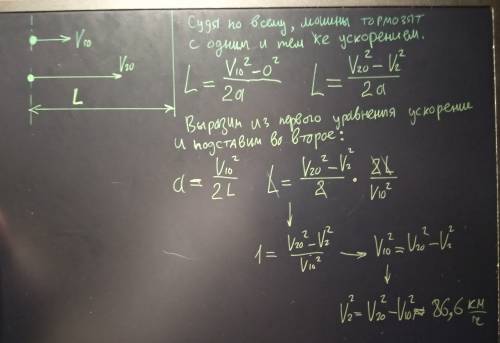 V₁₀
V₂₀
L
Судя по всему, машины тормозят
с одним и тем же ускорением.
L = (V₁₀² - 0²) / 2a    L = (V₂₀² - V₂²) / 2a
Выразим из первого уравнения ускорение
и подставим во второе:
a = V₁₀² / 2L    L = (V₂₀² - V₂²) / 2 · 2L / V₁₀²
↓
1 = (V₂₀² - V₂²) / V₁₀² → V₁₀² = V₂₀² - V₂²
↓
V₂² = V₂₀² - V₁₀² ≈ 86,6 км/ч